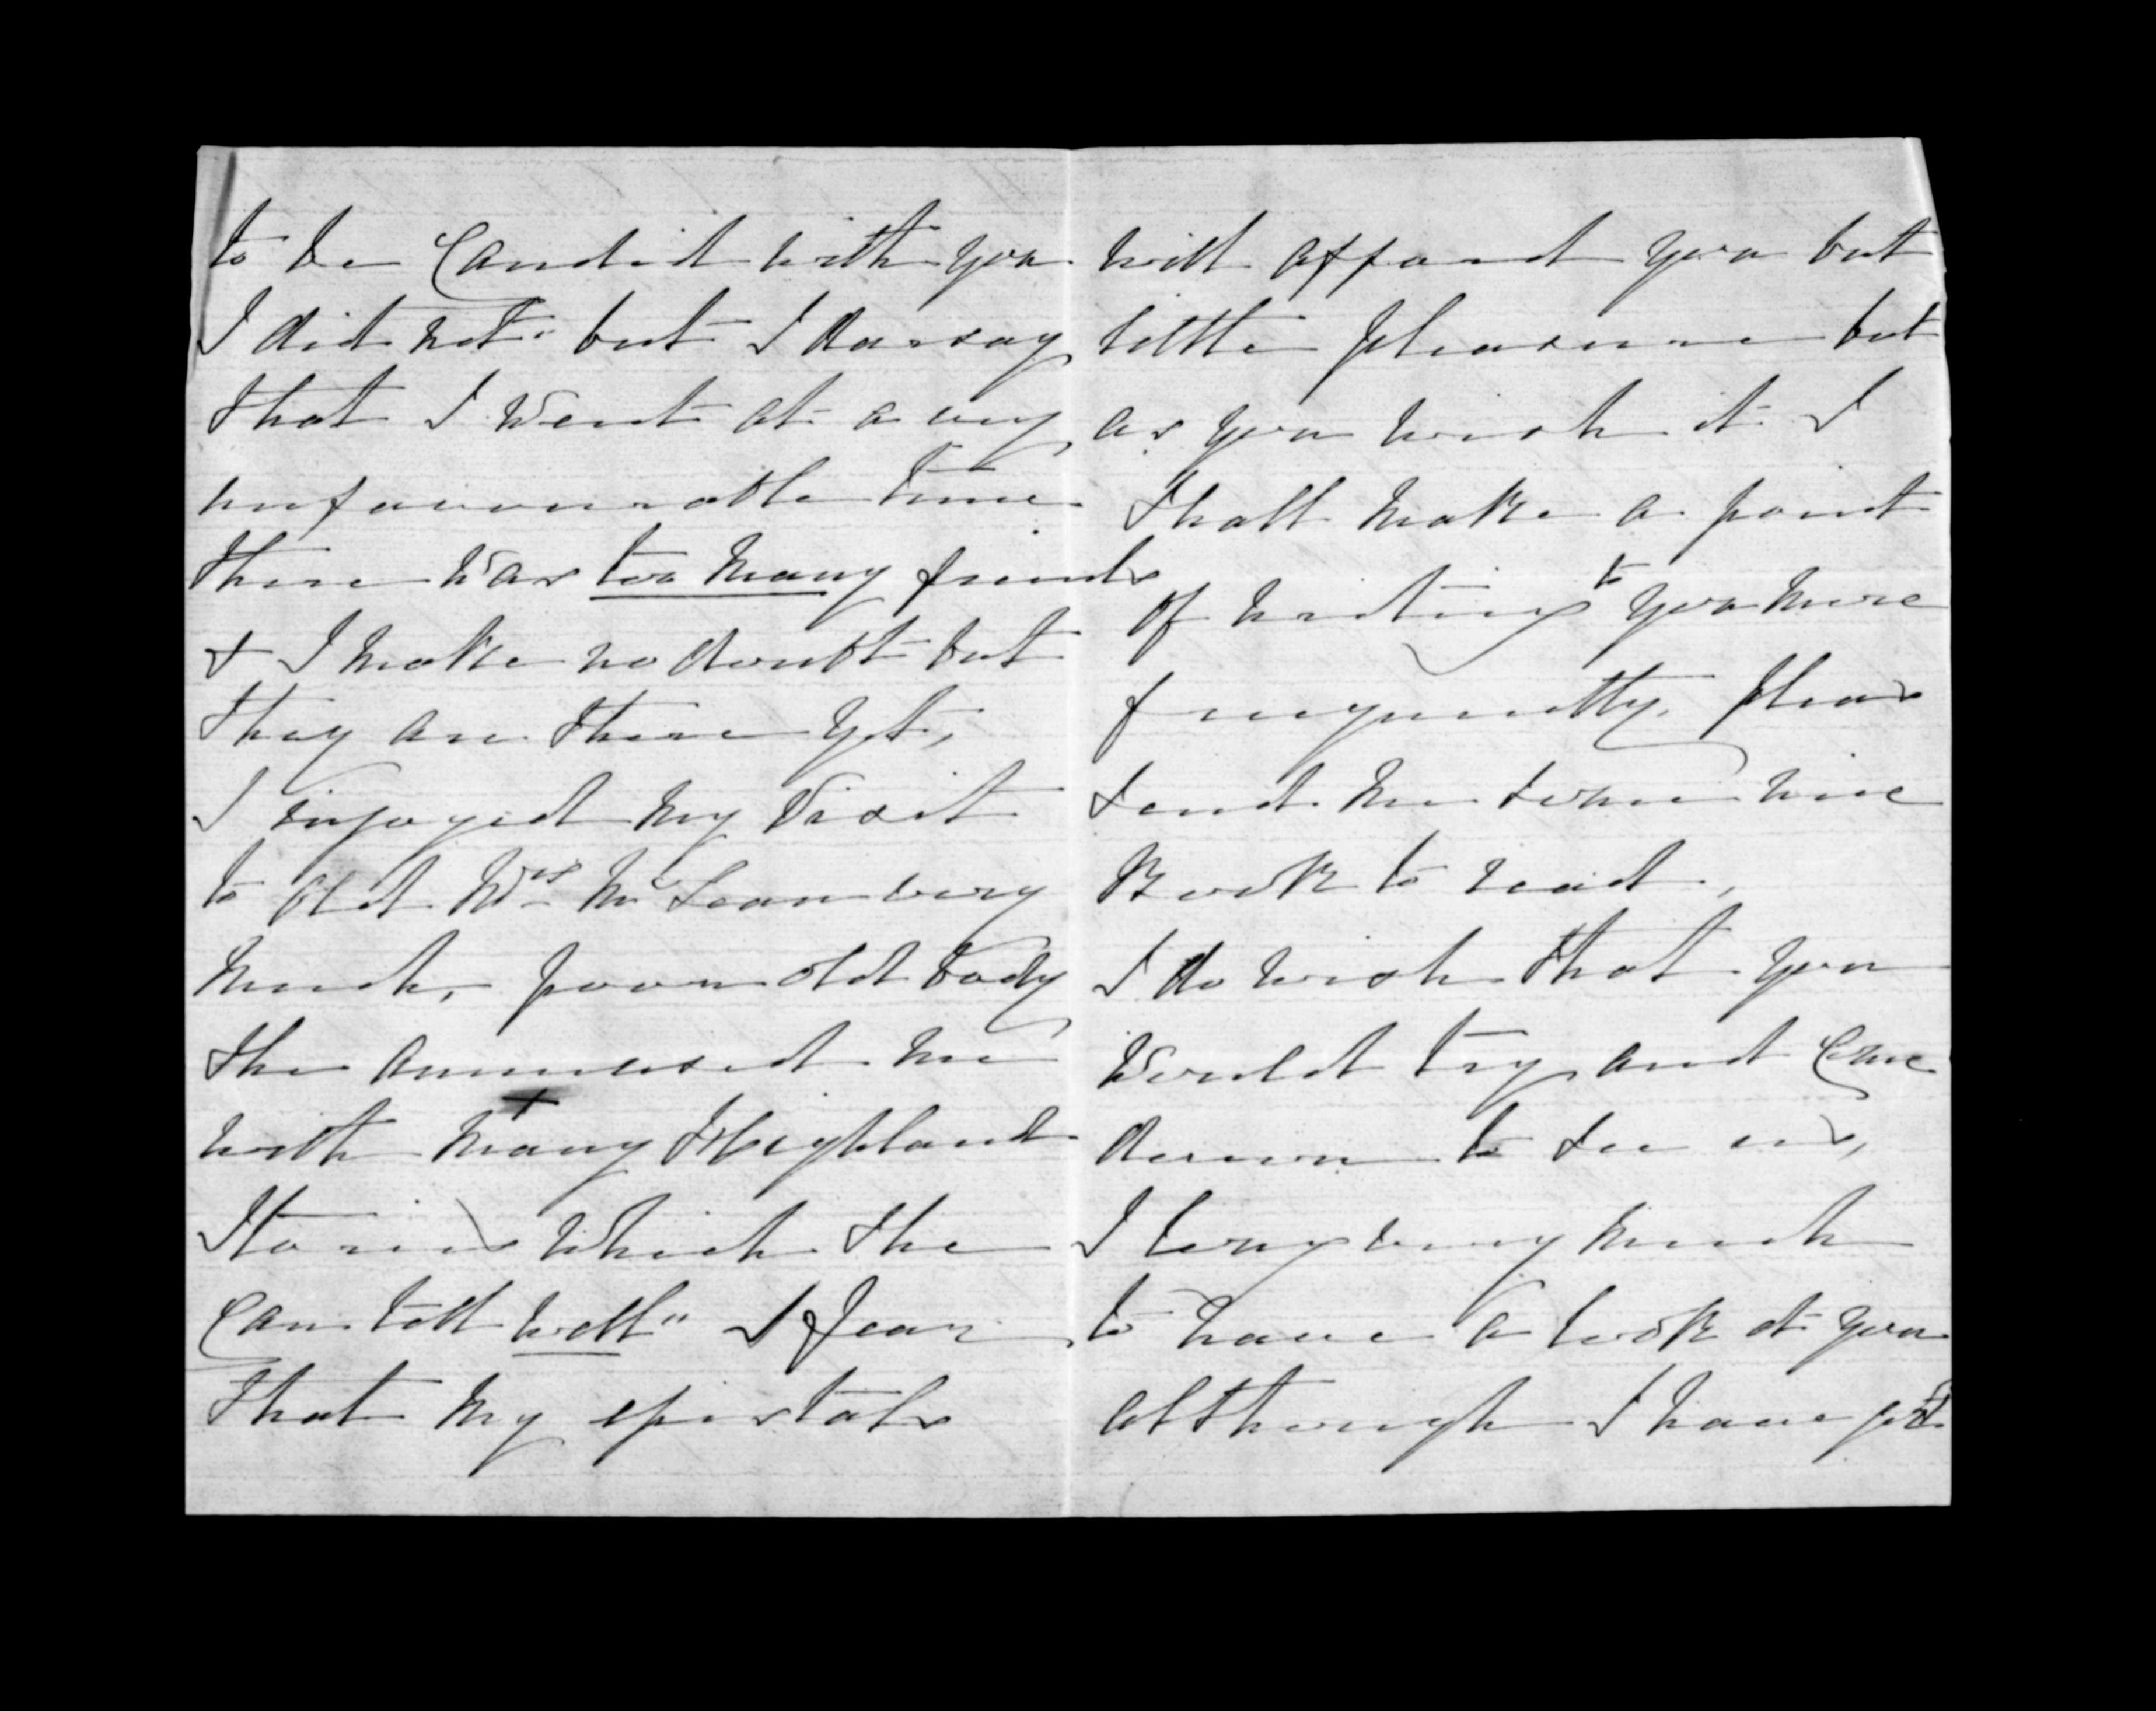 to be Candid with you
I did not" but I daresay
that I Went at a very
unfavourable time
there Was too many friends
& I make no doubt but
they are there yet,
I injoyed my Visit
to old Mrs McLean very
much, poor old body
she ammused me
with many Highland
Stories Which she
Can tell well" I fear
that my epistals
will afford you but
little pleasure but
as you wish it I
shall make a point
of writing to you more
frequently. pleas
send me some nice
Book to read,
I do wish that you
Would try and Come
down to see us,
I long very much
to have a look at you
although I have got